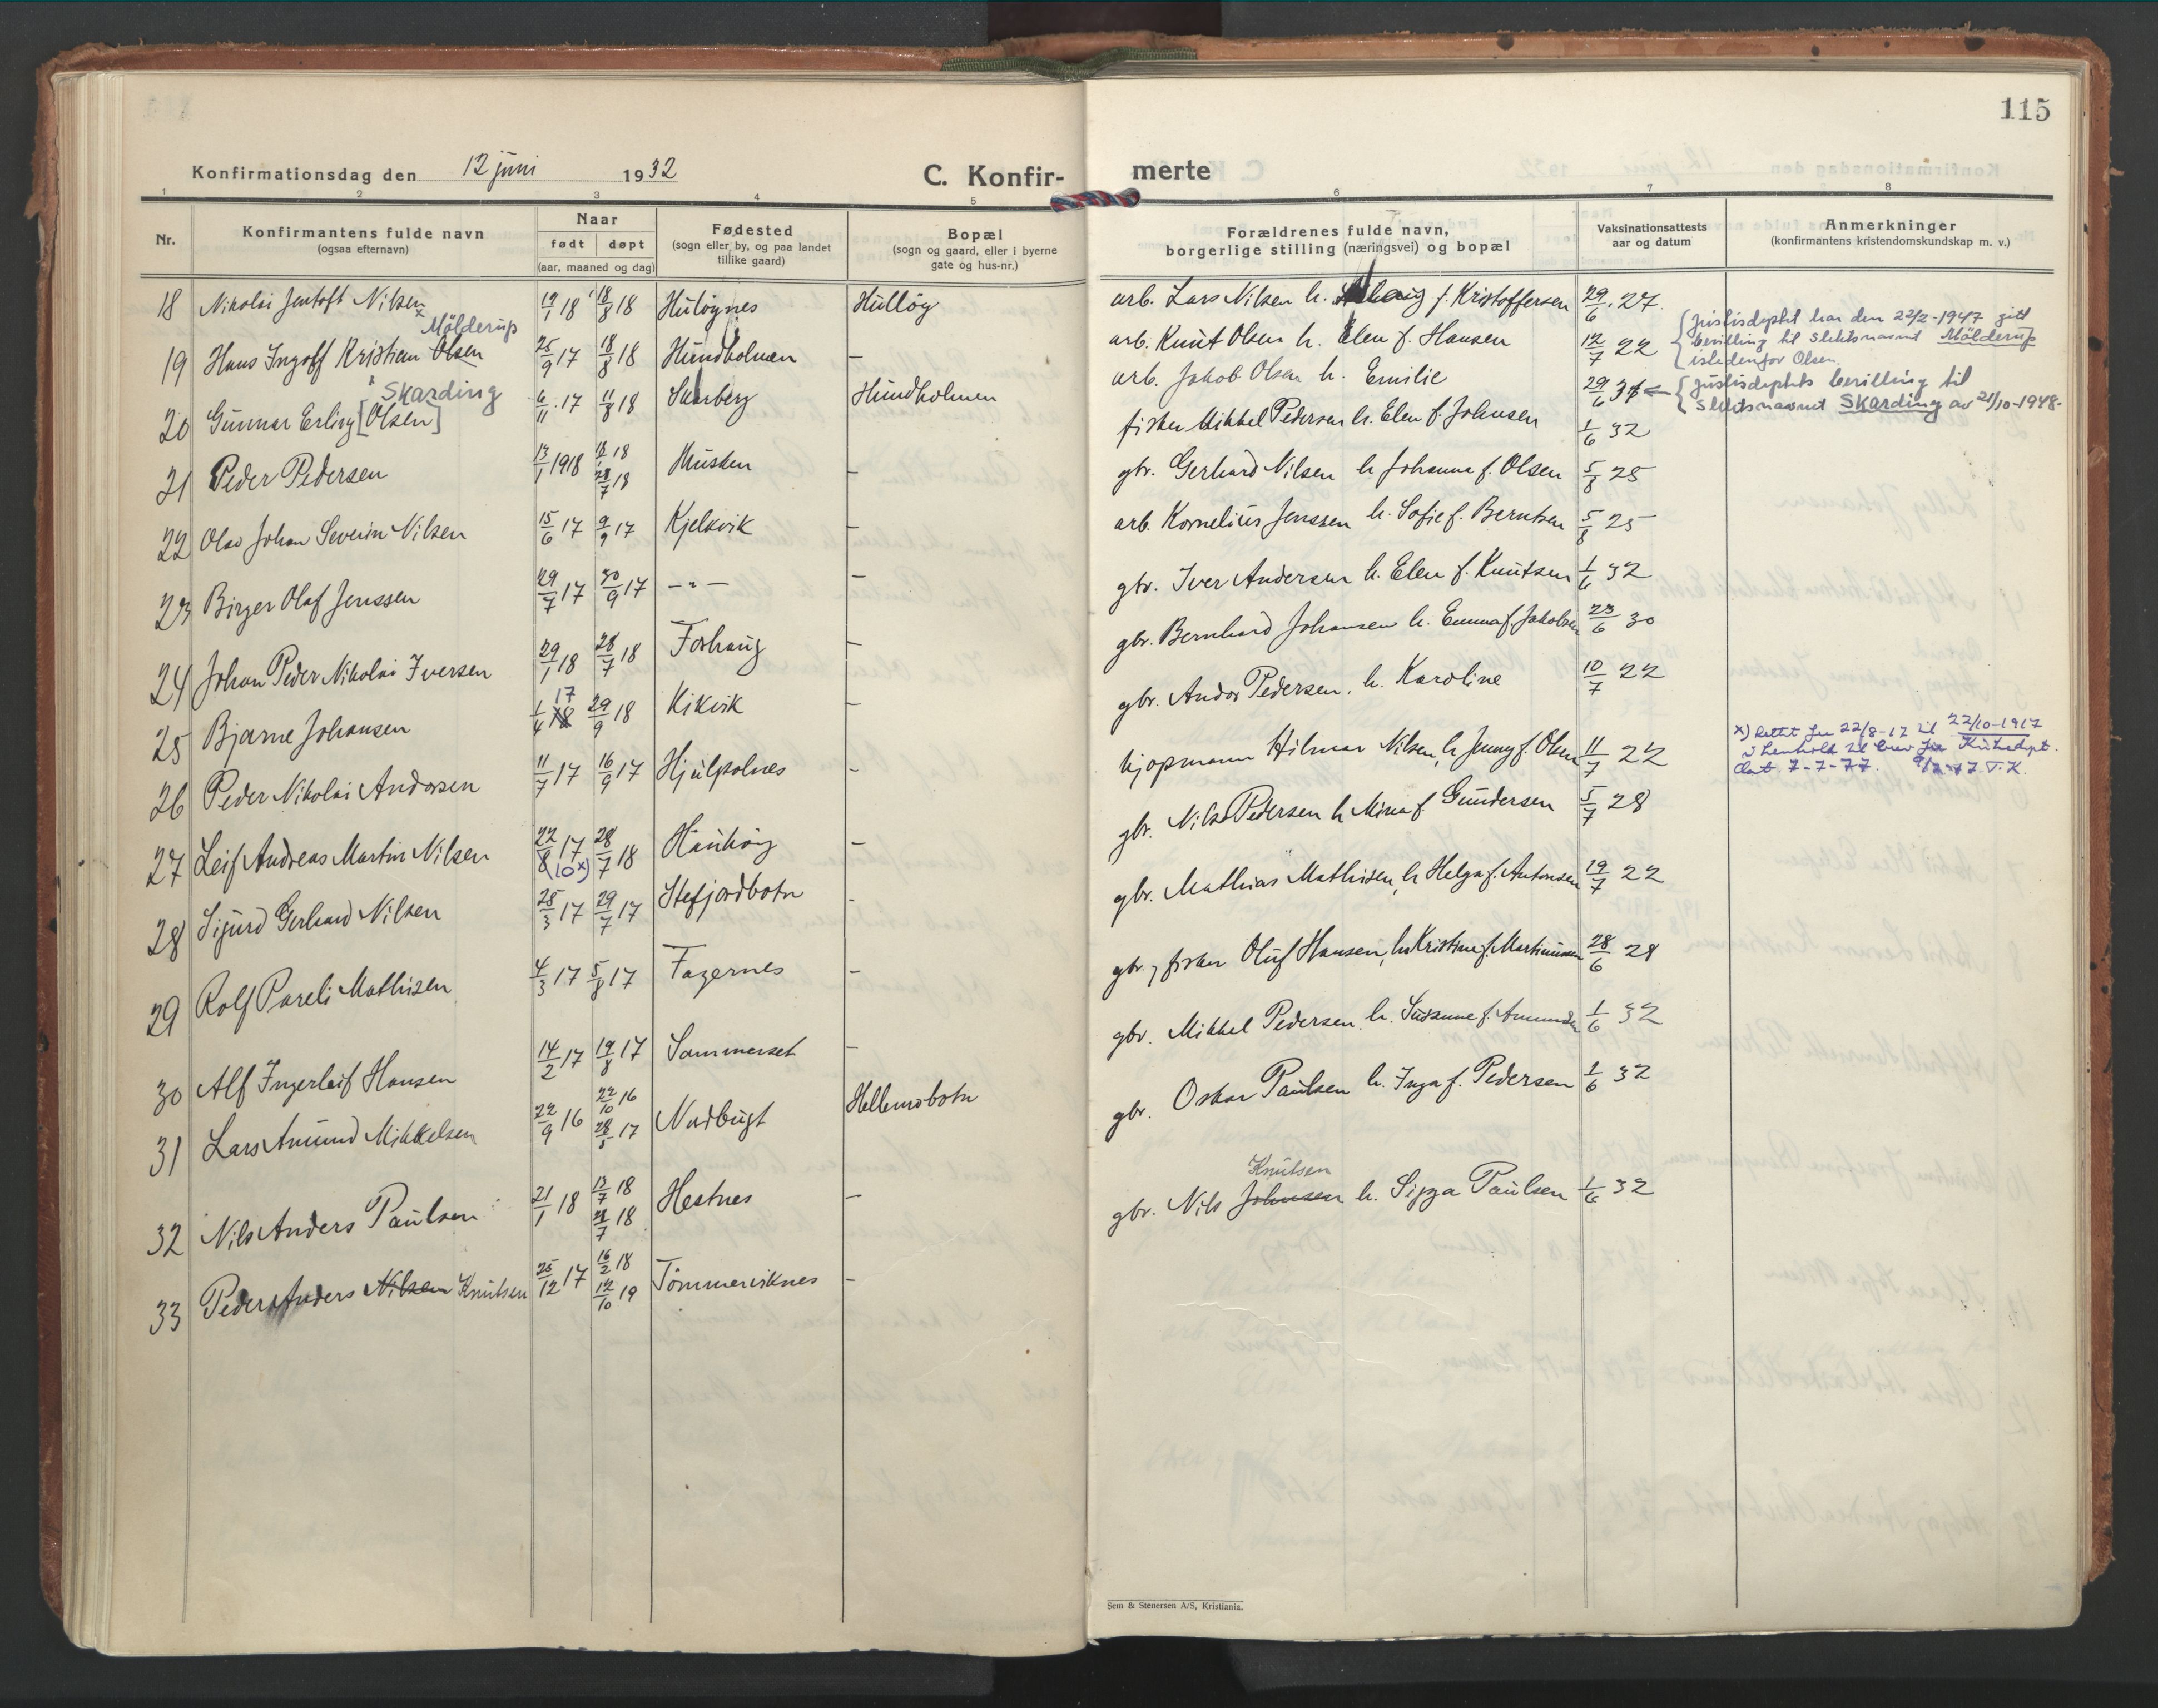 115
Konfirmationsdag den 12 juni 1932
C. Konfir-
merte
1 2 3 4 5 6 7 8
Nr.
Konfirmantens fulde navn
(ogsaa efternavn)
Naar
født døpt
(aar, maaned og dag)
Fødested
(sogn eller by, og paa landet
tillike gaard)
Bopæl
(sogn og gaard, eller i byerne
gate og hus-nr.)
Forældrenes fulde navn,
borgerlige stilling (næringsvei) og bopæl
Vaksinationsattests
aar og datum
Anmerkninger
(konfirmantens kristendomskundskap m. v.)
18 Nikolai Jentoft Nilsen 19/1 18 18/8 18 Huløynes Hulløy
Mölderup
19 Hans Ingolf Kristian Olsen 25/9 17 18/8 18 Hundholmen —
Skarding
20 Gunnar Erling [Olsen] 6/11 17 11/8 18 Skarberg Hundholmen
21 Peder Pedersen 13/1 1918 18 28/7 18 Musken —
22 Olav Johan Severin Nilsen 15/6 17 9/9 17 Kjelkvik —
23 Birger Olaf Jenssen 29/7 17 30/9 17 —"— —
24 Johan Peder Nikolai Iversen 29/1 18 28/7 18 Forhaug —
17
25 Bjarne Johansen 1/4 18 29/9 18 Kikvik —
26 Peder Nikolai Andorsen 11/7 17 16/9 17 Hjulpolnes —
27 Leif Andreas Martin Nilsen 22/8 17 28/7 18 Haukøy —
(10 x)
28 Sigurd Gerhard Nilsen 28/3 17 29/7 17 Stefjordbotn -
29 Rolf Pareli Mathisen 4/3 17 5/8 17 Fagernes —
30 Alf Ingerleif Hansen 14/2 17 19/8 17 Sommerset —
31 Lars Amund Mikkelsen 22/9 16 22/10 16 28/5 17 Nordbugt Hellemobotn
32 Nils Anders Paulsen 21/1 18 13/7 18 28/7 18 Hestnes —
33 Peder Anders Nilsen Knutsen 25/12 17 16/2 18 12/10 19 Tömmeviknes —
arb. Lars Nilsen h. f. Kristoffersen 29/6 27.
arb. Knut Olsen h. Elen f. Hansen 12/7 22
Justisdeptet har den 22/2-1947 gitt
bevilling til slektsnavnet Mölderup
istedenfor Olsen
arb. Jakob Olsen h. Emilie 29/6 31
Justisdeptets bevilling til
slektsnavnet Skarding av 21/10-1948.
fisker Mikkel Pedersen h. Elen f. Johnsen 1/6 32
gbr. Gerhard Nilsen h Johanna f. Olsen 5/8 25
arb. Kornelius Jenssen h. Sofie f. Berntsen 5/8 25
gbr. Iver Andersen h. Elen f. Knutsen 1/6 32
gbr. Bernhard Johansen h. Emma f. Jakobsen 23/6 30
gbr. Andor Pedersen. h. Karoline 10/7 22
kjøpmann Hilmar Nilsen, h Jenny f. Olsen 11/7 22
x) Rettet fra 22/8-17 til 22/10-1917
i henhold til brev fra Kirkedept.
dat 7-7-77. T.K.
gbr. Nils Pedersen h Mina f. Gundersen 5/7 28
gbr. Mathias Mathisen, h Helga f. Antonsen 19/7 22
gbr. og fisker Oluf Hansen, h. Kristine f. Martinussen 28/6 28
gbr. Mikkel Pedersen h. Susanne f. Amundsen 1/6 32
gbr. Oskar Paulsen h. Inga f. Pedersen 1/6 32
Knutsen
gbr. Nils Johnsen h. Sigga Paulsen 1/6 32
Sem & Stenersen A/S, Kristiania.